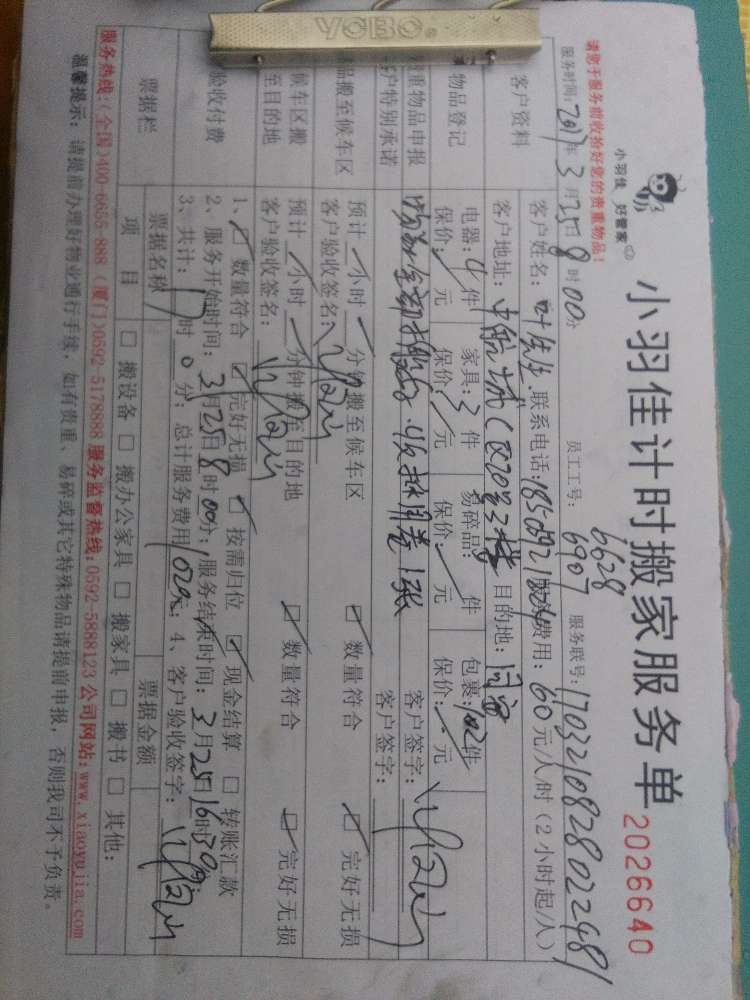 YGBO®
小羽佳 好管家
小羽佳计时搬家服务单
2026640
请您于服务前收拾好您的贵重物品!
员工工号: 6628
6907
服务联号: 1703210828022481
服务时间: 2017年3月25日8时00分
客户资料
客户姓名: 叶先生 联系电话: 费用: 60元/人/时(2小时起/人)
客户地址: 目的地: 同安
物品登记
电器: 4件 家具: 3件 易碎品: 件 包裹: 件
保价: 元 保价: 元 保价: 元 保价: 元
重物品申报 客户签字:
客户特别承诺 客户签字:
品搬至候车区
预计 小时 分钟搬至候车区 数量符合 完好无损
客户验收签名:
候车区搬至目的地
预计 小时 分钟搬至目的地 数量符合 完好无损
客户验收签名:
验收付费
1、 数量符合 完好无损 按需归位 现金结算 转账汇款
2、服务开始时间: 3月25日8时00分; 服务结束时间: 3月25日16时30分;
3、共计: 17时0分; 总计服务费用1020元; 4、客户验收签字:
票据栏
票据名称 票据金额
项目 搬设备 搬办公家具 搬家具 搬书 其他:
服务热线:(全国)400-6655-888 (厦门)0592-5178888 服务监督热线:0592-5888123 公司网站:www.xiaoyujia.com
温馨提示: 请提前办理好物业通行手续, 如有贵重、易碎或其它特殊物品请提前申报, 否则我司不予负责。